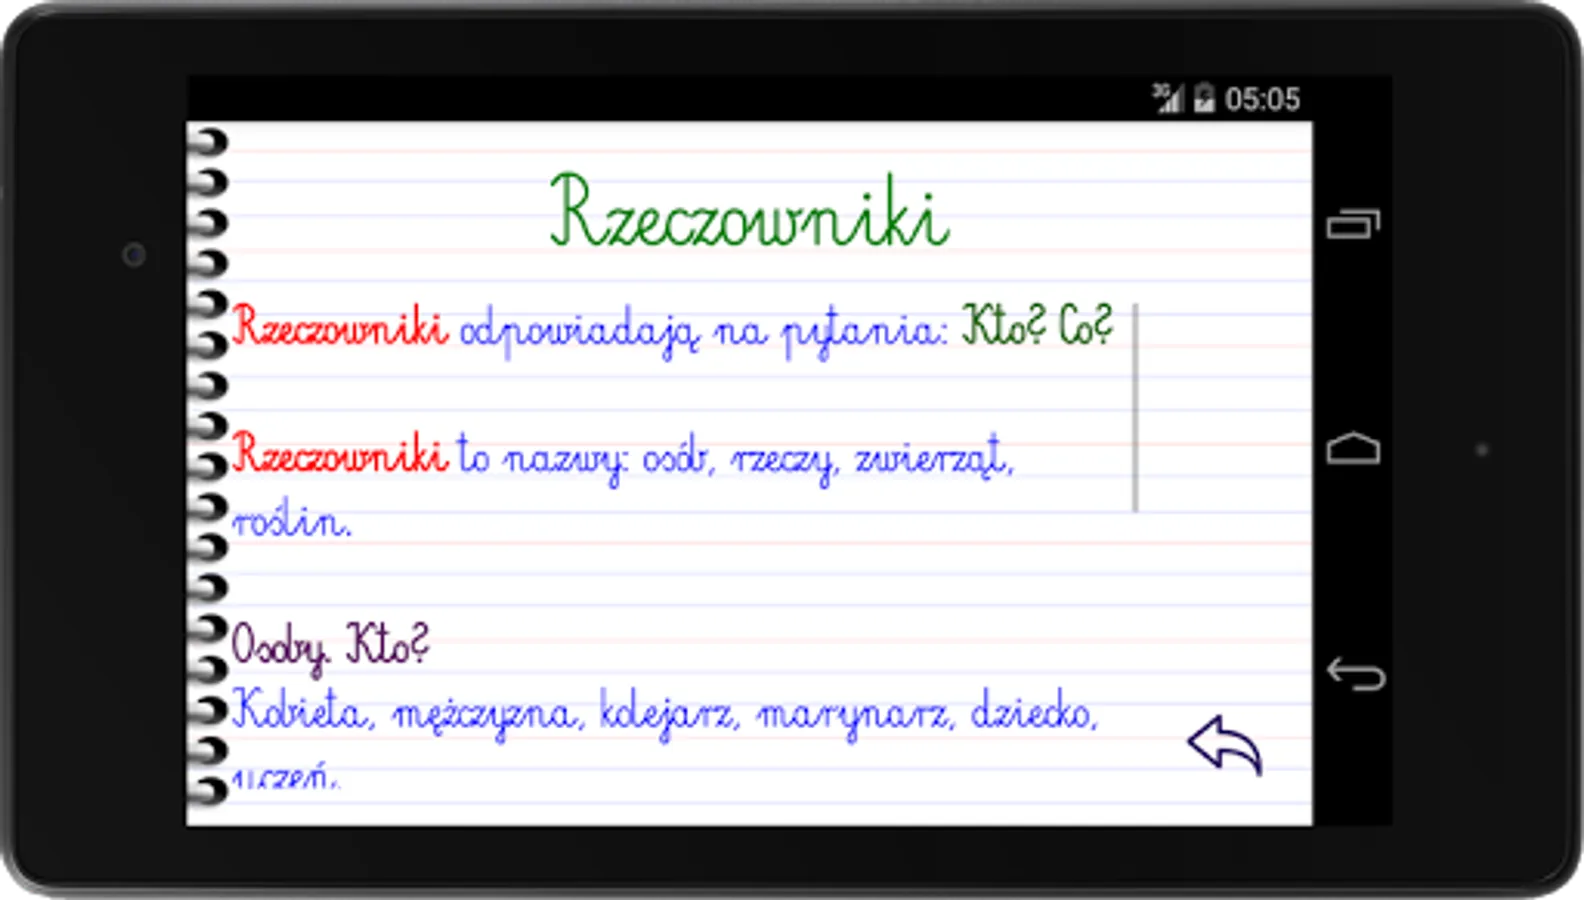 3G 05:05
Rzeczowniki
Rzeczowniki odpowiadają na pytania: Kto? Co?
Rzeczowniki to nazwy: osób, rzeczy, zwierząt,
roślin.
Osoby. Kto?
Kobieta, mężczyzna, kolejarz, marynarz, dziecko,
uczeń.